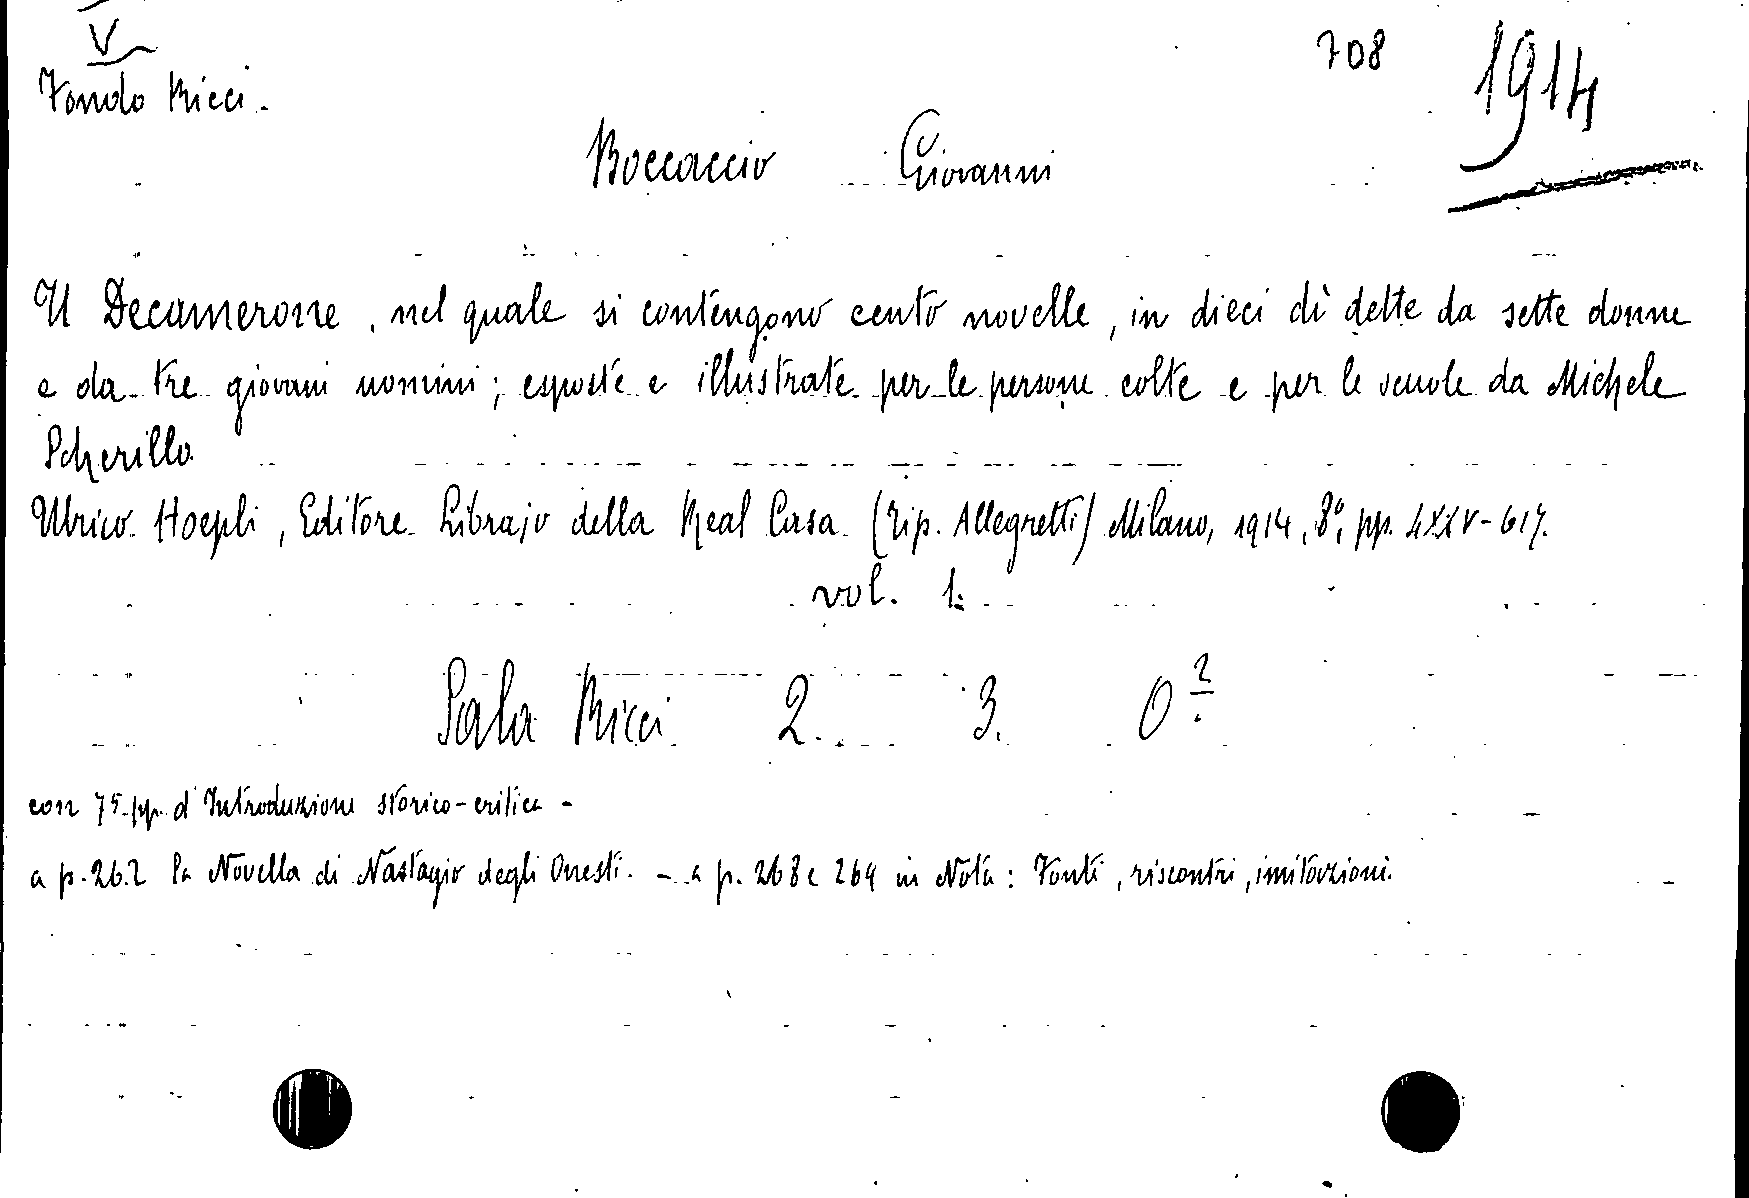 V
Fondo Ricci.
708
1914
Boccaccio Giovanni
Il Decamerone, nel quale si contengono cento novelle, in dieci dì dette da sette donne
e da tre giovani uomini; esposte e illustrate per le persone colte e per le scuole da Michele
Scherillo
Ulrico Hoepli, Editore Librajo della Real Casa (Tip. Allegretti) Milano, 1914, 8°, pp. LXXV-617.
vol. 1.
Sala Ricci 2. 3. O ?
con 75 pp. d'Introduzione storico-critica -
a p. 262 la Novella di Nastagio degli Onesti. - a p. 268 e 269 in Nota: Fonti, riscontri, imitazioni.